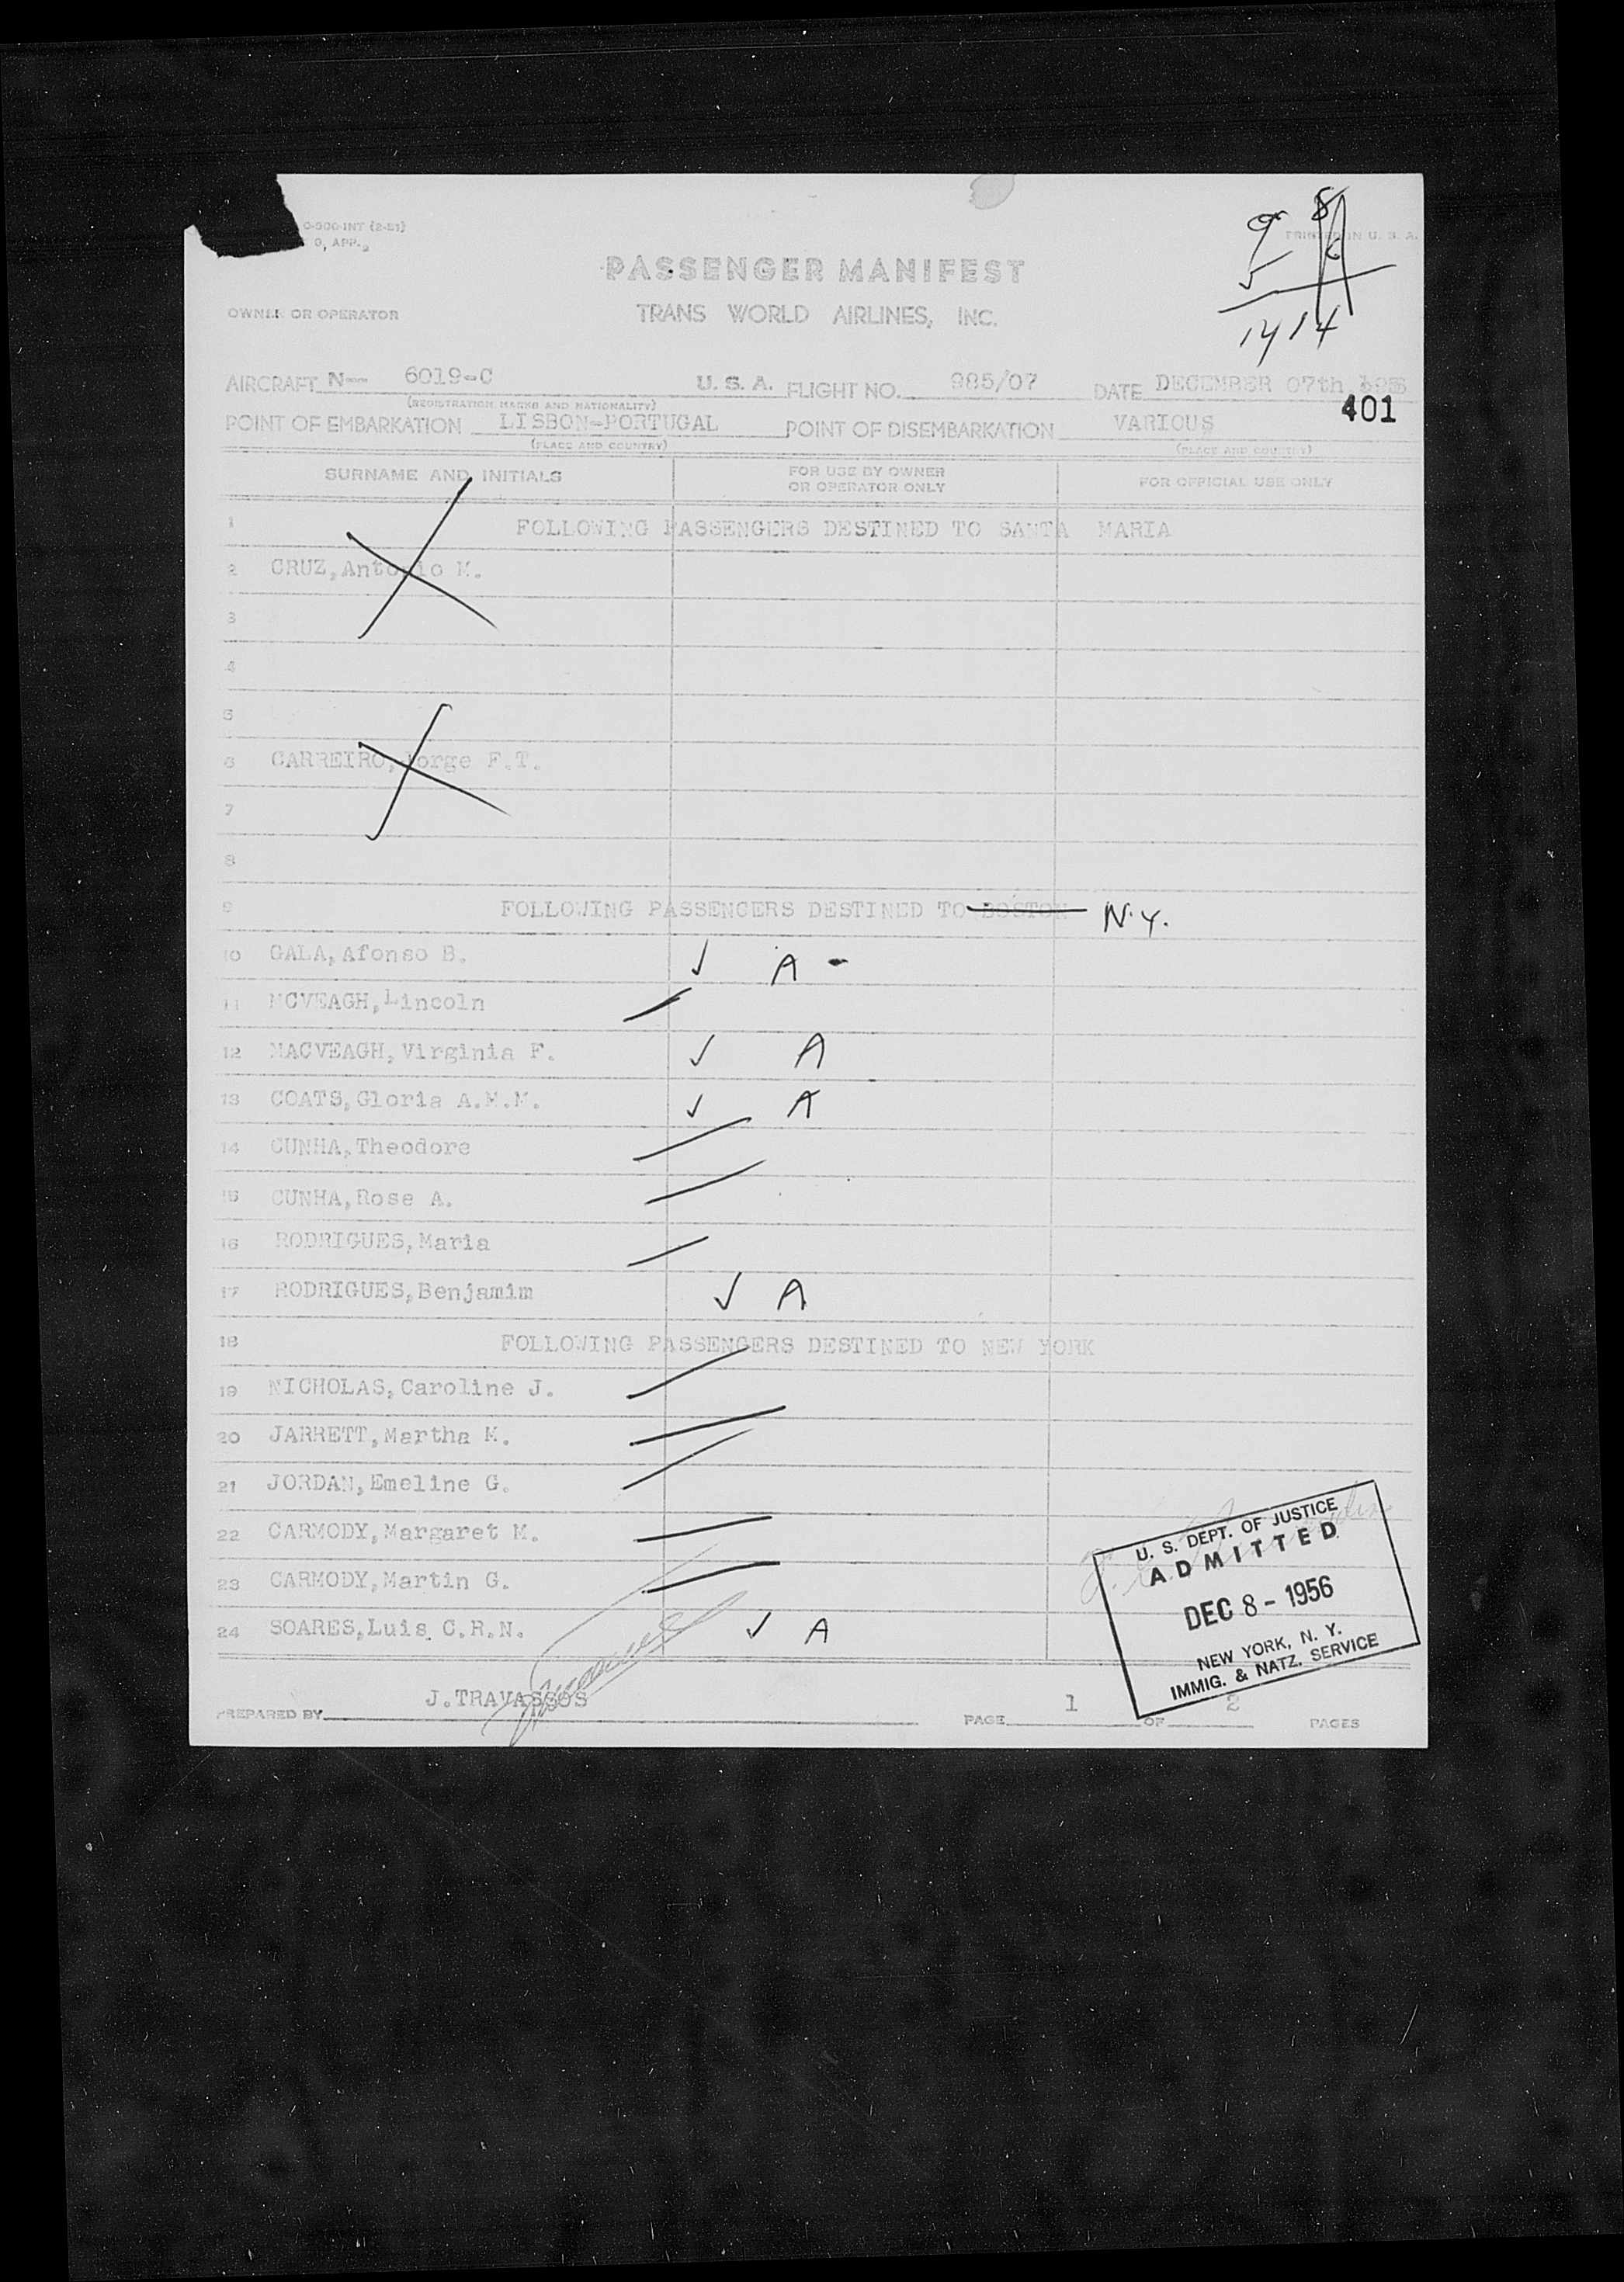 0-300-INT (2-51)
PRINTED IN U. S. A.
9 8
5 6
14 14
PASSENGER MANIFEST
OWNER OR OPERATOR TRANS WORLD AIRLINES, INC.
AIRCRAFT N-- 6019-C U. S. A. FLIGHT NO. 985/07 DATE DECEMBER 07th,
(REGISTRATION MARKS AND NATIONALITY)
401
POINT OF EMBARKATION LISBON-PORTUGAL POINT OF DISEMBARKATION VARIOUS
(PLACE AND COUNTRY) (PLACE AND COUNTRY)
SURNAME AND INITIALS FOR USE BY OWNER OR OPERATOR ONLY FOR OFFICIAL USE ONLY
1 FOLLOWING PASSENGERS DESTINED TO SANTA MARIA
2 CRUZ,Antonio M.
3
4
5
6 CARREIRO,Jorge F.T.
7
8
9 FOLLOWING PASSENGERS DESTINED TO BOSTON N.Y.
10 GALA,Afonso B. ✓ A -
11 MCVEAGH,Lincoln
12 MACVEAGH,Virginia F. ✓ A
13 COATS,Gloria A.M.M. ✓ A
14 CUNHA,Theodore
15 CUNHA,Rose A.
16 RODRIGUES,Maria
17 RODRIGUES,Benjamim ✓ A
18 FOLLOWING PASSENGERS DESTINED TO NEW YORK
19 NICHOLAS,Caroline J.
20 JARRETT,Martha M.
21 JORDAN,Emeline G.
22 CARMODY,Margaret M.
23 CARMODY,Martin G.
24 SOARES,Luis C.R.N. ✓ A
U. S. DEPT. OF JUSTICE
ADMITTED
DEC 8 - 1956
NEW YORK, N. Y.
IMMIG. & NATZ. SERVICE
PREPARED BY J.TRAVASSOS PAGE 1 OF 2 PAGES